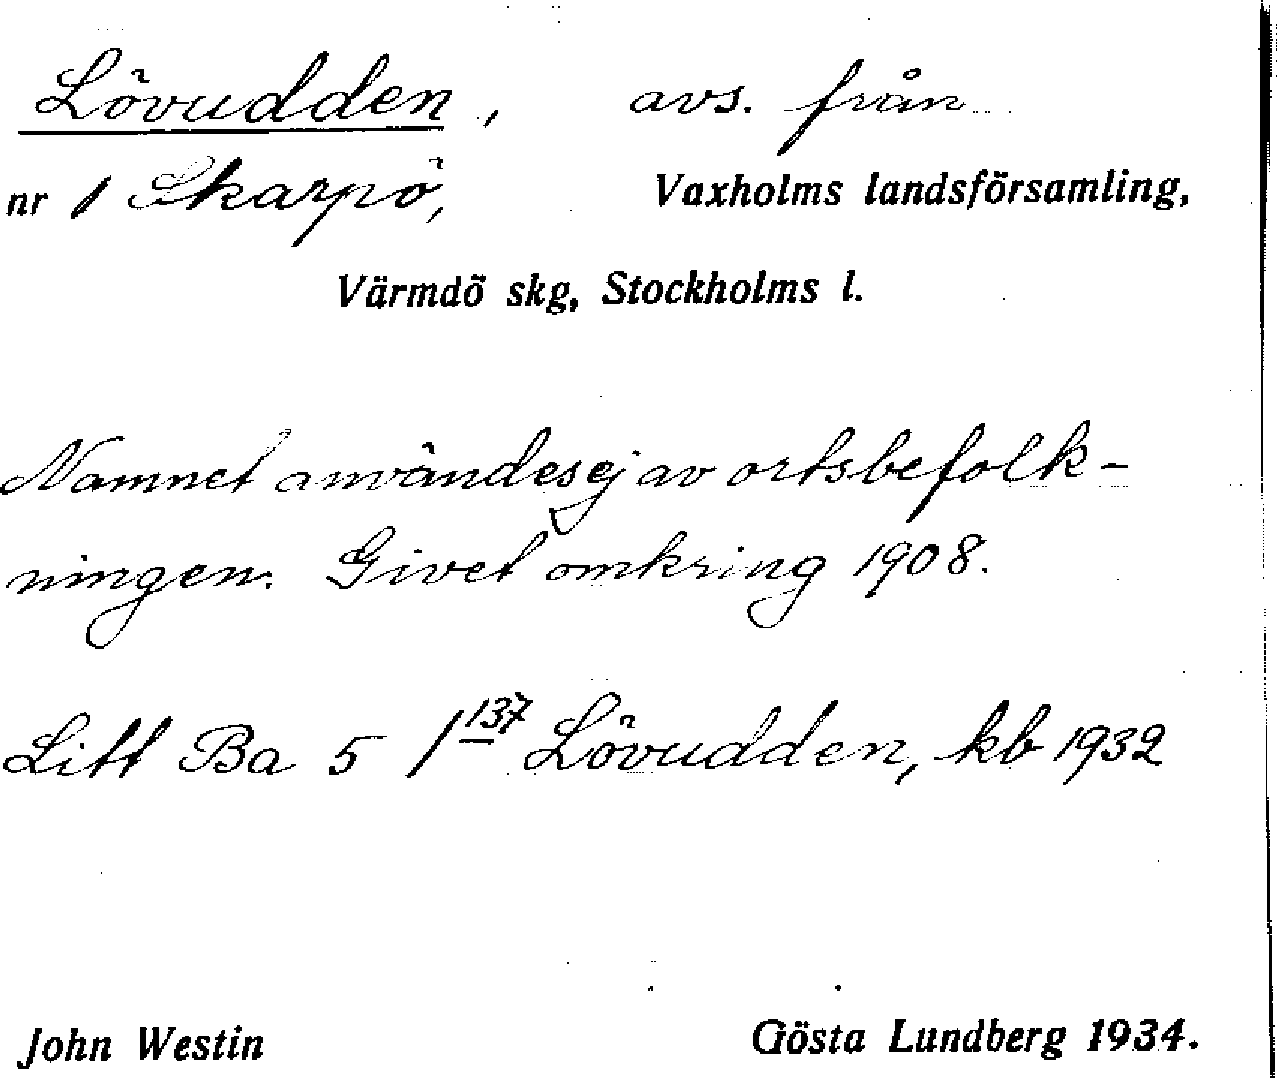 Lövudden, avs. från
nr 1 Skarpö, Vaxholms landsförsamling,
Värmdö skg, Stockholms l.
Namnet användes ej av ortsbefolk-
ningen. Givet omkring 1908.
Litt Ba 5 1 137 Lövudden, kb 1932
John Westin Gösta Lundberg 1934.